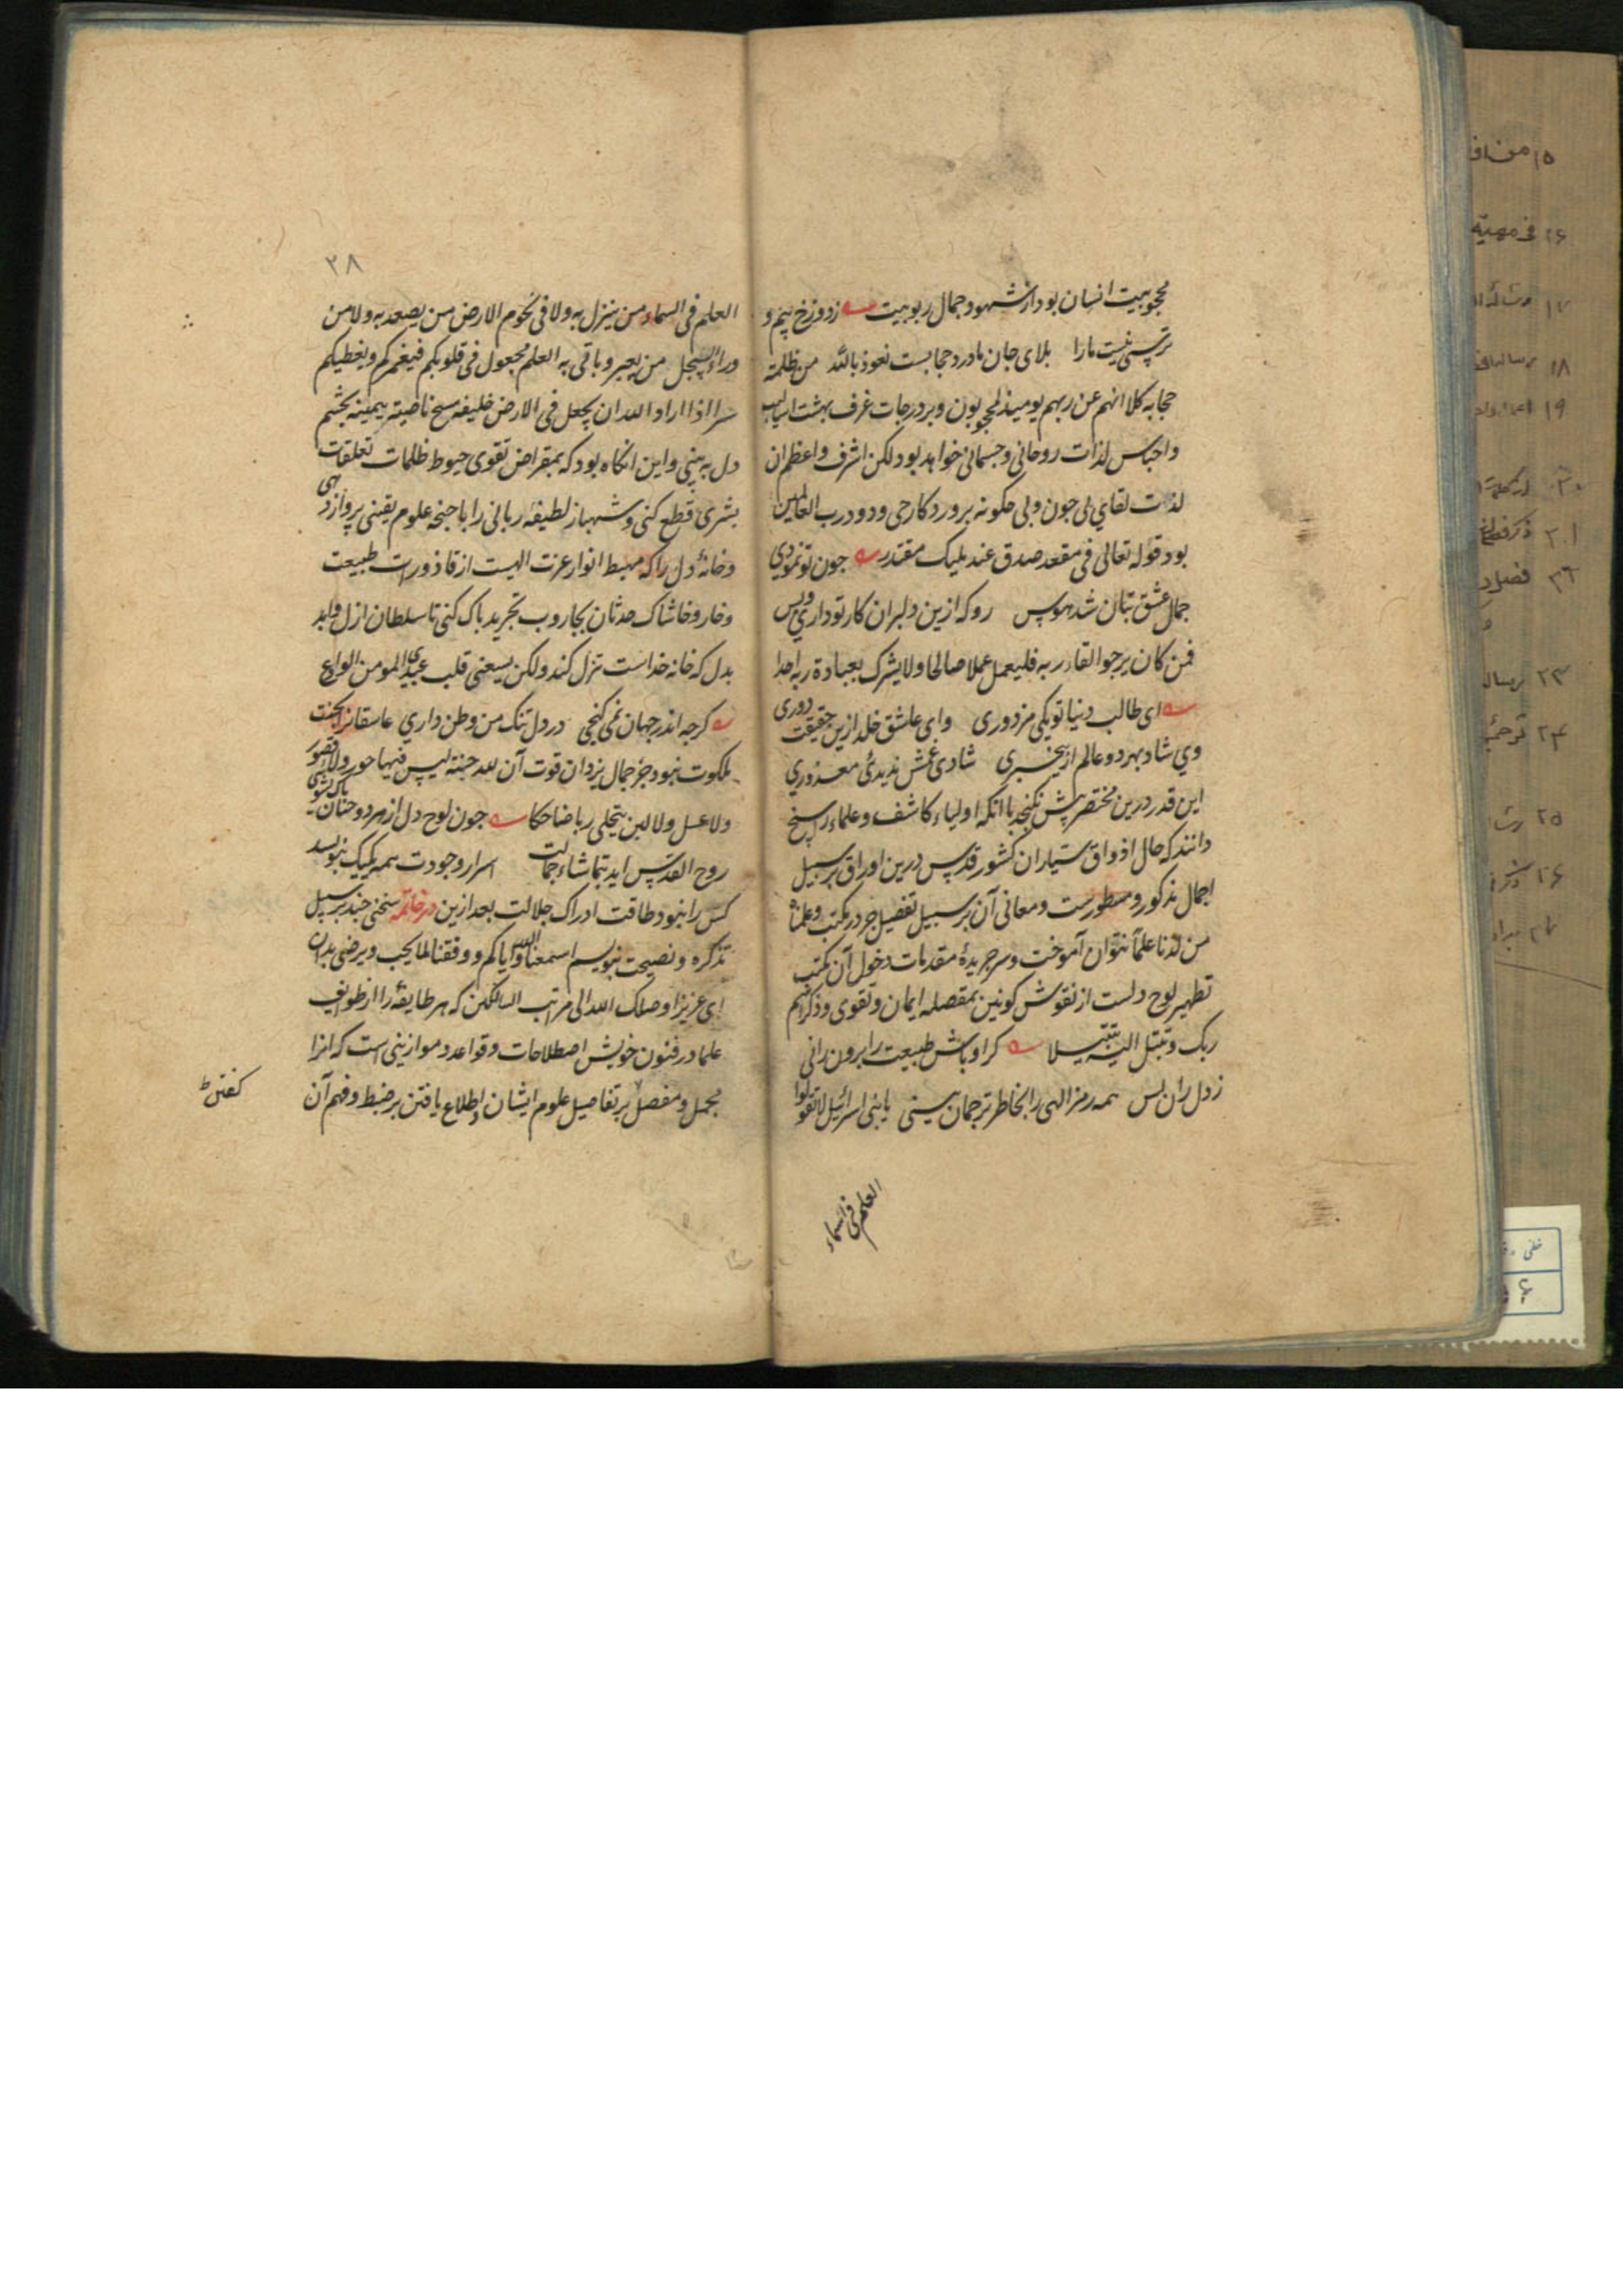 محجوبیت انسان بود از شهود جمال ربوبیت زدوزخ بیم و
ترسی نیست مارا بلای جان ما درد حجابست نعوذ بالله من ظلمة
حجابه کلا انهم عن ربهم یومیذ لمحجوبون و بر درجات غرف بهشت اسالیب
و اجناس لذات روحانی و جسمانی خواهد بود لکن اشرف و اعظم ان
لذات لقای بی چون و بی چکونه پروردکار حی ودود رب العالمین
بود قوله تعالی فی مقعد صدق عند ملیک مقتدر جون تو نمودی
جمال عشق بتان شد هوس رو که ازین دلبران کار تو داری و بس
فمن کان یرجوا لقاء ربه فلیعمل عملا صالحا ولا یشرک بعبادة ربه احدا
ای طالب دنیا تو یکی مزدوری وای عاشق خلد ازین حقیقت دوری
وی شاد بهر دو عالم از بیخبری شادی غمش ندیدئ معذوری
این قدر درین مختصر بیش نکنجد با انکه اولیاء کاشف و علماء راسخ
دانند که حال اذواق سیاران کشور قدس درین اوراق بر سبیل
اجمال مذکور و مسطورست و معانی آن بر سبیل تفصیل جز در مکتب و علمناه
من لدنا علما نتوان آموخت و سر جریدۀ مقدمات دخول آن مکتب
تطهیر لوح دلست از نقوش کونین بمصقله ایمان و تقوی و ذکر اسم
ربک و تبتل الیه تبتیلا کر اوباش طبیعت را برون رانی
ز دل زان پس همه رمز الهی را بخاطر ترجمان بینی یا بنی اسرائیل لا تقولوا
العلم فی السماء
۳۸
العلم فی السماء من ینزل به ولا فی تخوم الارض من یصعد به ولا من
وراء من یعبر و یاتی به العلم مجعول فی قلوبکم فیغمرکم و یغطیکم
سرا اذا اراد الله ان یجعل فی الارض خلیفه مسح ناصیته بیمینه بچشم
دل به بینی و این انکاه بود که بمقراض تقوی خیوط ظلمات تعلقات
بشری قطع کنی و شهباز لطیفۀ ربانی را با جنحه علوم یقینی پرواز دهی
و خانۀ دل را که مهبط انوار عزت الهیست از قاذورات طبیعت
و خار و خاشاک حدثان بجاروب تجرید پاک کنی تا سلطان ازل و ابد
بدل که خانه خداست نزل کند و لکن یسعنی قلب عبدی المومن الوادع
کرچه اندر جهان نمی کنجی در دل تنک من وطن داری عاشقانرا بجنت
ملکوت نبود جز جمال یزدان قوت آن لله جنة لیس فیها حور ولا قصور
ولا عسل ولا لبن یتجلی ربنا ضاحکا جون لوح دل از هر دو جهان پاک بشوئی
روح القدس اید بتماشاء جمالت اسرار وجودت همه یکیک بنویسد
کس را نبود طاقت ادراک جلالت بعد ازین در خاتمه سخنی چند بر سبیل
تذکره و نصیحت بنویسم اسمعنا الله و ایاکم و وفقنا لما یحب و یرضی بدان
ای عزیز اوصلک الله الی مراتب السالکین که هر طایفه را از طوایف
علما در فنون خویش اصطلاحات و قواعد و موازینی است که انرا
مجمل و مفصل بر تفاصیل علوم ایشان و اطلاع یافتن بر ضبط و فهم آن
کفتن
۱۵ من
۱۶ فی
۱۷
۱۸ رساله
۱۹
۲۰
۲۱ ذکر
۲۲ فصل
۲۳ رساله
۲۴ ترجمه
۲۵
۲۶
۲۷
خطی